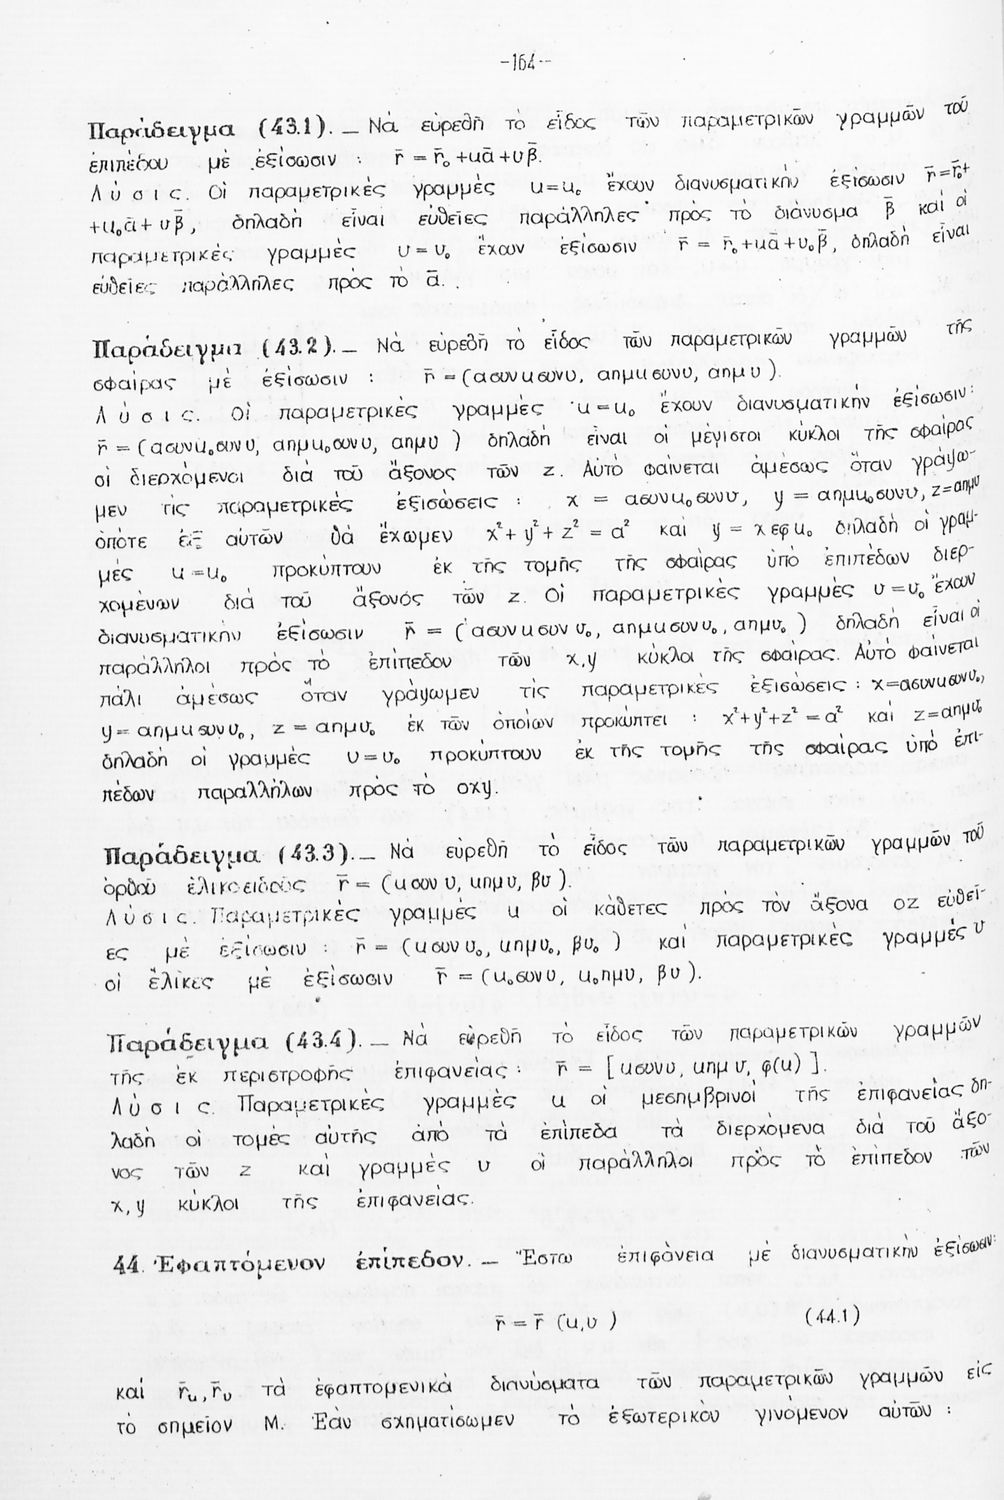 -164-
Παράδειγμα (43.1). _ Νὰ εὑρεθῇ τὸ εἶδος τῶν παραμετρικῶν γραμμῶν τοῦ
ἐπιπέδου μὲ ἐξίσωσιν : r̄ = r̄₀ + uᾱ + υβ̄.
Λ ύ σ ι ς. Οἱ παραμετρικὲς γραμμὲς u = u₀ ἔχουν διανυσματικὴν ἐξίσωσιν r̄ = r̄₀ +
+ u₀ᾱ + υβ̄, δηλαδὴ εἶναι εὐθεῖες παράλληλες πρὸς τὸ διάνυσμα β̄ καὶ οἱ
παραμετρικὲς γραμμὲς υ = υ₀ ἔχουν ἐξίσωσιν r̄ = r̄₀ + uᾱ + υ₀β̄, δηλαδὴ εἶναι
εὐθεῖες παράλληλες πρὸς τὸ ᾱ.
Παράδειγμα (43.2). _ Νὰ εὑρεθῇ τὸ εἶδος τῶν παραμετρικῶν γραμμῶν τῆς
σφαίρας μὲ ἐξίσωσιν : r̄ = (ασυνuσυνυ, αημuσυνυ, αημυ).
Λ ύ σ ι ς. Οἱ παραμετρικὲς γραμμὲς u = u₀ ἔχουν διανυσματικὴν ἐξίσωσιν:
r̄ = (ασυνu₀συνυ, αημu₀συνυ, αημυ) δηλαδὴ εἶναι οἱ μέγιστοι κύκλοι τῆς σφαίρας
οἱ διερχόμενοι διὰ τοῦ ἄξονος τῶν z. Αὐτὸ φαίνεται ἀμέσως ὅταν γράψω-
μεν τὶς παραμετρικὲς ἐξισώσεις : x = ασυνu₀συνυ, y = αημu₀συνυ, z = αημυ
ὁπότε ἐξ αὐτῶν θὰ ἔχωμεν x² + y² + z² = α² καὶ y = xεφu₀ δηλαδὴ οἱ γραμ-
μὲς u = u₀ προκύπτουν ἐκ τῆς τομῆς τῆς σφαίρας ὑπὸ ἐπιπέδων διερ-
χομένων διὰ τοῦ ἄξονός τῶν z. Οἱ παραμετρικὲς γραμμὲς υ = υ₀ ἔχουν
διανυσματικὴν ἐξίσωσιν r̄ = (ασυνuσυνυ₀, αημuσυνυ₀, αημυ₀) δηλαδὴ εἶναι οἱ
παράλληλοι πρὸς τὸ ἐπίπεδον τῶν x,y κύκλοι τῆς σφαίρας. Αὐτὸ φαίνεται
πάλι ἀμέσως ὅταν γράψωμεν τὶς παραμετρικὲς ἐξισώσεις : x = ασυνuσυνυ₀,
y = αημuσυνυ₀, z = αημυ₀ ἐκ τῶν ὁποίων προκύπτει : x² + y² + z² = α² καὶ z = αημυ₀
δηλαδὴ οἱ γραμμὲς υ = υ₀ προκύπτουν ἐκ τῆς τομῆς τῆς σφαίρας ὑπὸ ἐπι-
πέδων παραλλήλων πρὸς τὸ oxy.
Παράδειγμα (43.3). _ Νὰ εὑρεθῇ τὸ εἶδος τῶν παραμετρικῶν γραμμῶν τοῦ
ὀρθοῦ ἑλικοειδοῦς r̄ = (uσυνυ, uημυ, βυ).
Λ ύ σ ι ς. Παραμετρικὲς γραμμὲς u οἱ κάθετες πρὸς τὸν ἄξονα oz εὐθεῖ-
ες μὲ ἐξίσωσιν : r̄ = (uσυνυ₀, uημυ₀, βυ₀) καὶ παραμετρικὲς γραμμὲς υ
οἱ ἕλικες μὲ ἐξίσωσιν r̄ = (u₀συνυ, u₀ημυ, βυ).
Παράδειγμα (43.4). _ Νὰ εὑρεθῇ τὸ εἶδος τῶν παραμετρικῶν γραμμῶν
τῆς ἐκ περιστροφῆς ἐπιφανείας : r̄ = [uσυνυ, uημυ, φ(u)].
Λ ύ σ ι ς. Παραμετρικὲς γραμμὲς u οἱ μεσημβρινοὶ τῆς ἐπιφανείας δη-
λαδὴ οἱ τομὲς αὐτῆς ἀπὸ τὰ ἐπίπεδα τὰ διερχόμενα διὰ τοῦ ἄξο-
νος τῶν z καὶ γραμμὲς υ οἱ παράλληλοι πρὸς τὸ ἐπίπεδον τῶν
x,y κύκλοι τῆς ἐπιφανείας.
44. Ἐφαπτόμενον ἐπίπεδον. _ Ἔστω ἐπιφάνεια μὲ διανυσματικὴν ἐξίσωσιν:
r̄ = r̄ (u,υ) (44.1)
καὶ r̄ᵤ, r̄ᵥ τὰ ἐφαπτομενικὰ διανύσματα τῶν παραμετρικῶν γραμμῶν εἰς
τὸ σημεῖον Μ. Ἐὰν σχηματίσωμεν τὸ ἐξωτερικὸν γινόμενον αὐτῶν :